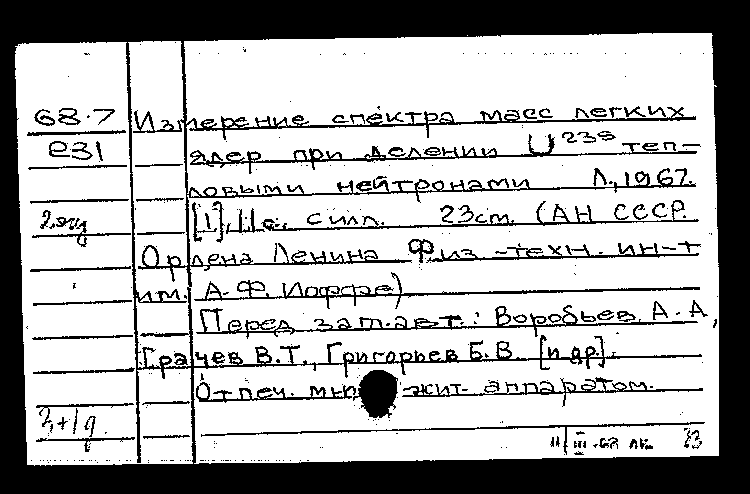 68.7 Измерение спектра масс легких
е31 ядер при делении U²³⁸ теп-
ловыми нейтронами Л., 1967.
[1], 11 с., с илл. 23 cm. (АН СССР.
Ордена Ленина Физ-техн. ин-т
им. А.Ф. Иоффе)
Перед загл. авт.: Воробьев А.А,
Грачев В.Т., Григорьев Б.В. [и др].
Отпеч. жит. аппаратом.
3+1 д.